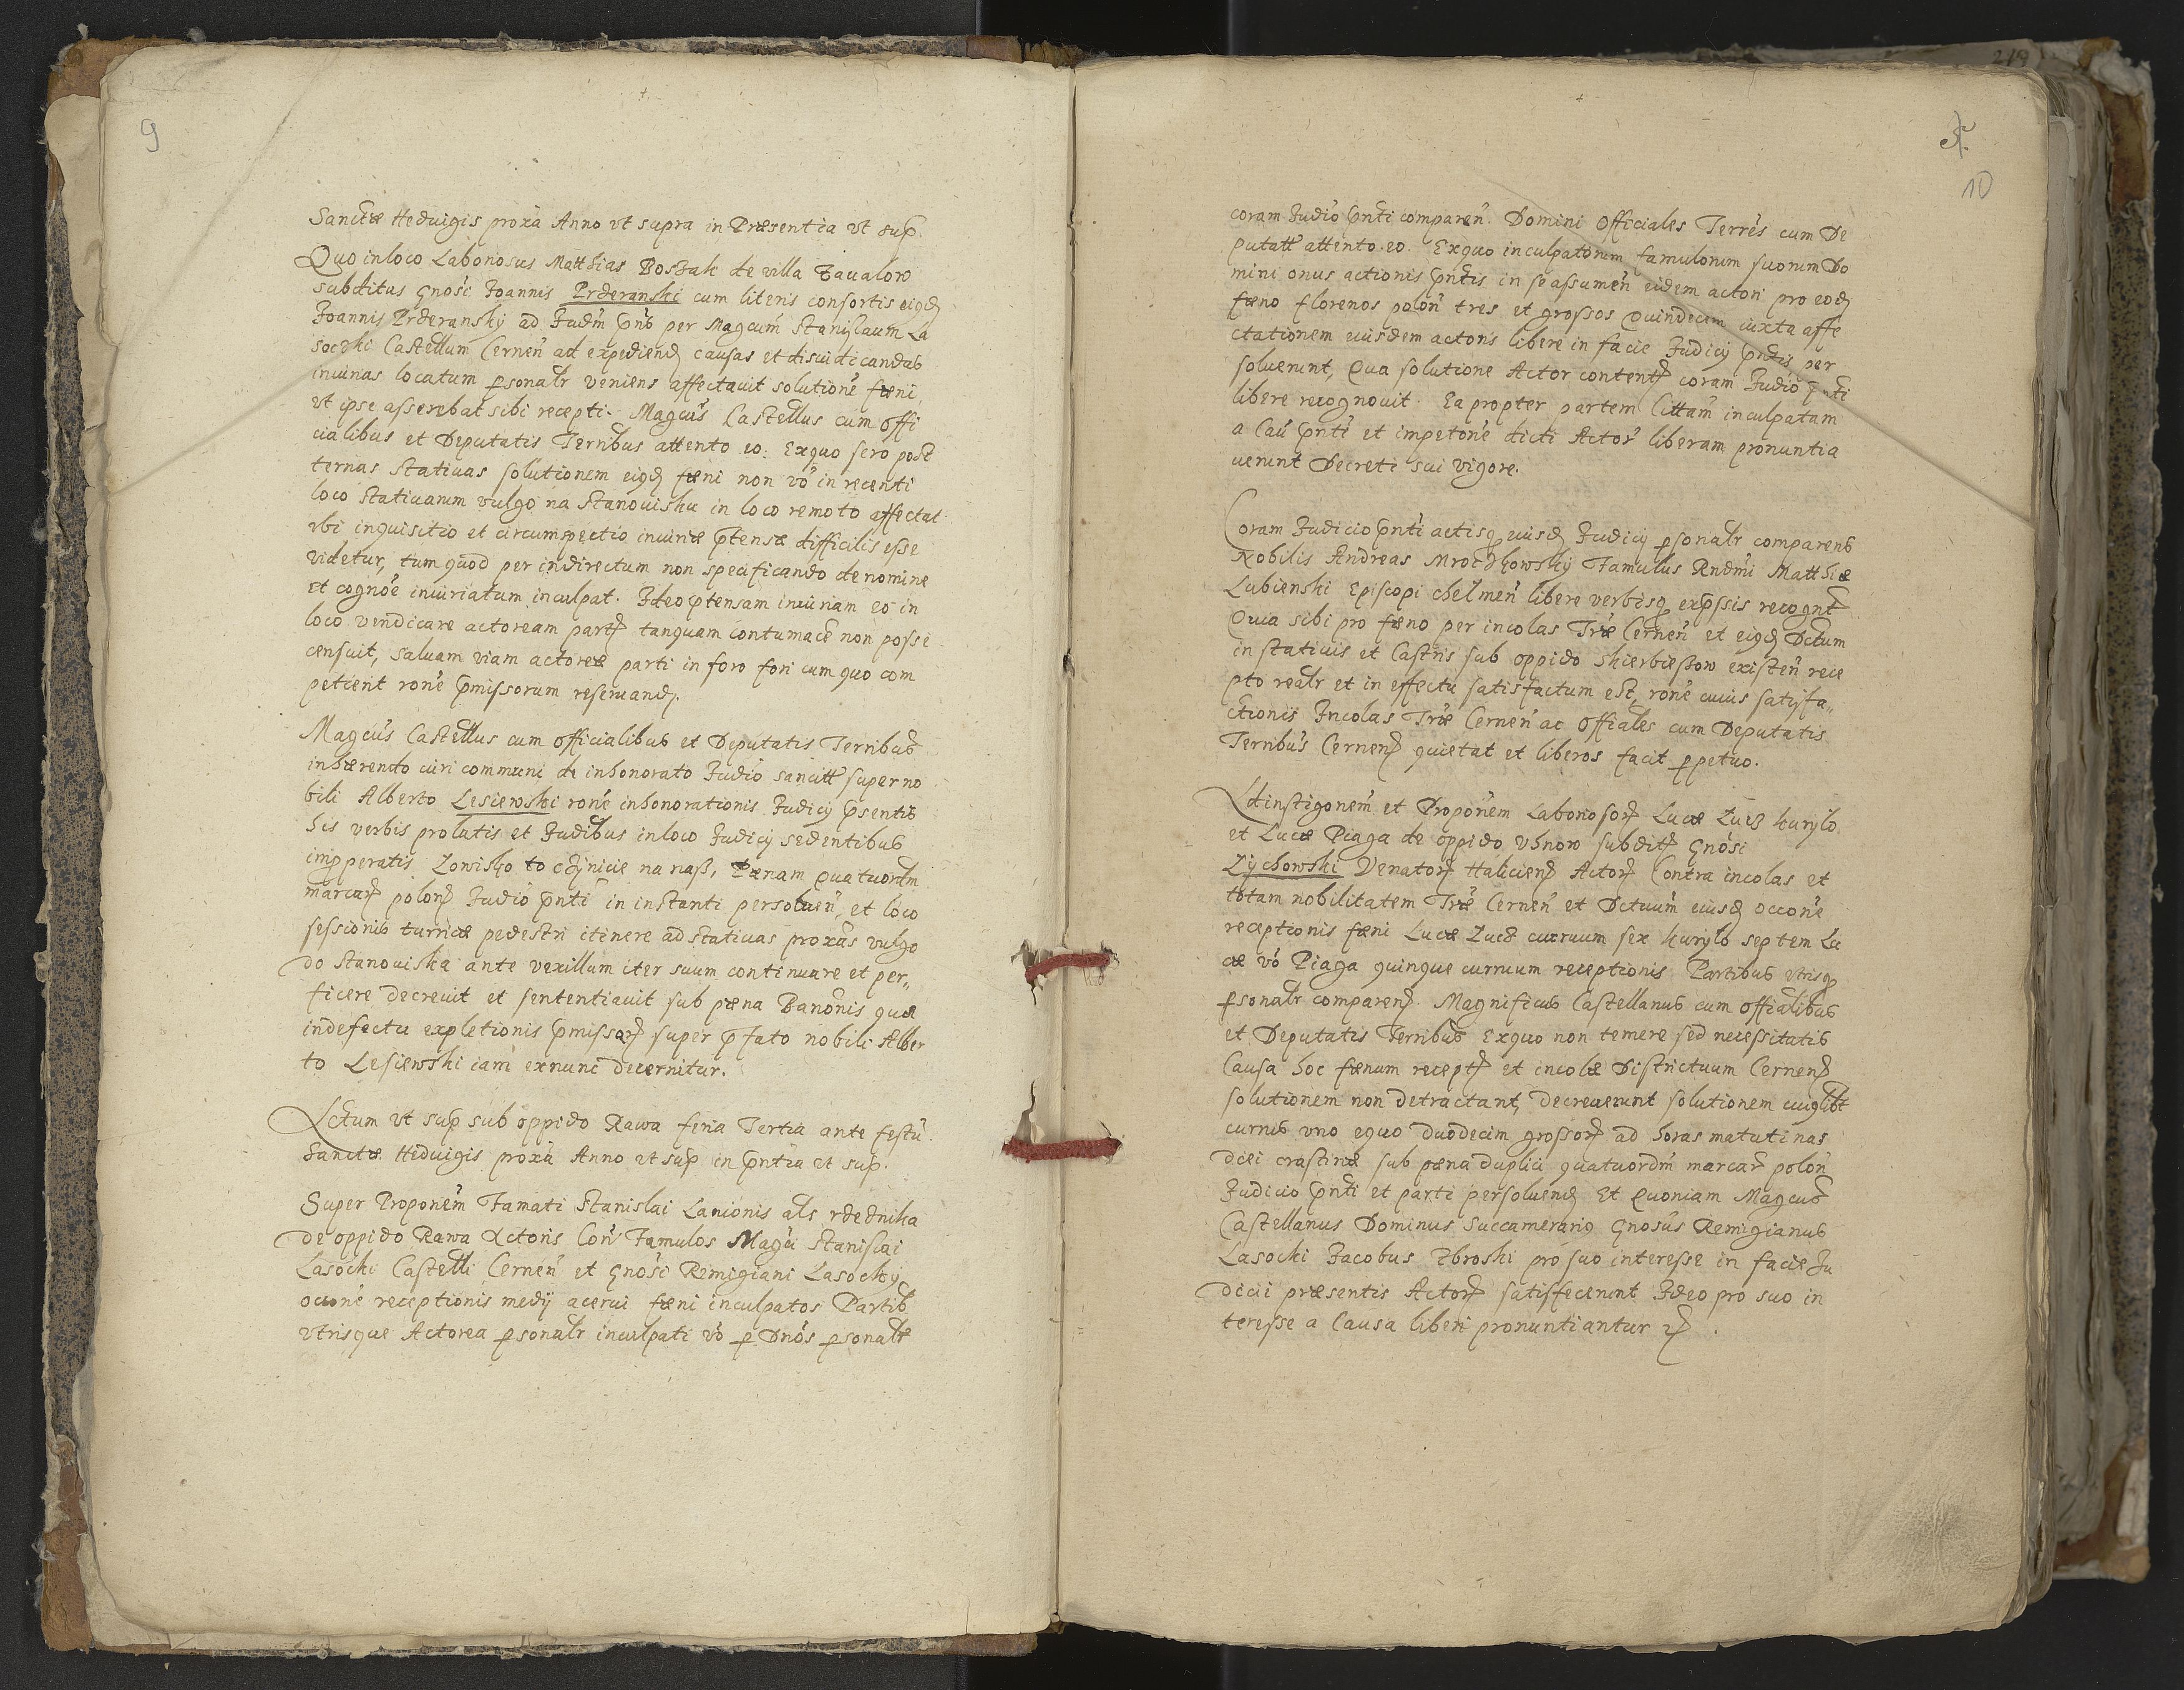 9
Sanctæ Heduigis proxã Anno vt supra in Præsentia vt sup.
Quo in loco Laboriosus Matthias Boszak de villa
subditus Gnosi Joannis Przeranski cum literis consortis eiqd
Joannis Przeransky ad Judm pns per Magcum Stanislaum La
sochi Castellum Cernen ad expediend causas et diiudicandas
iniurias locatum psonalr veniens affectauit solutionẽ fæni,
vt ipse asserebat sibi recepti. Magcus Castellus cum Offi
cialibus et Deputatis Terribus attento eo: Exquo sero post
ternas statiuas solutionem eiqd fæni non vo in recenti
loco statiuarum vulgo na stanouisku in loco remoto affectat
vbi inquisitio et circumspectio iniuriæ ptensæ difficilis esse
videtur, tum quod per indirectum non specificando de nomine
et cognoe iniuriatum inculpat. Ideo ptensam iniuriam eo in
loco vendicare actoream part tanquam contumacẽ non posse
censuit, saluam viam actoreæ parti in foro fori cum quo com
petient rone pmissorum reseruand.
Magcus Castellus cum officialibus et Deputatis Terribus
inhærendo iuri communi de inhonorato Judio sancitt super no
bili Alberto Lesiewski rone inhonorationis Judicy psentis
his verbis prolatis et Judibus in loco Judicy sedentibus
impperatis Zowisko to czynicie na nasz, Pænam quatuordm
marcar polon Judio pnti in instanti persoluen, et loco
sessionis turriæ pedestri itinere ad statiuas proxas vulgo
do stanouiska ante vexillum iter suum continuare et per„
ficere decreuit et sententiauit sub pæna Banonis quæ
indefectu expletionis pmissor super p fato nobili Alber
to Lesiewski iam exnunc decernitur.
Actum vt sup sub oppido Rawa feria Tertia ante festũ
Sanctæ Heduigis proxã Anno vt sup in pntia vt sup.
Super Proponem Famati Stanislai Lanionis als rzeznika
de oppido Rawa Actoris Con Famulos Magci Stanislai
Lasochi Castelli Cernen et Gnosi Remigiani Lasochy
occone receptionis medij acerui fæni inculpatos Partib
vtrisque Actorea psonalr inculpati vo p Dnos psonalr
5.
10
coram Judio pnti comparen. Domini Officiales Terres cum De
putatt attento eo. Exquo inculpatorum famulorum suorum Do
mini onus actionis pntis in se assumen eidem actori pro eod
fæno florenos polon tres et grossos quindecim iuxta affe
ctationem eiusdem actoris libere in facie Judicy pntis per
soluerunt, Qua solutione Actor content coram Judio pnti
libere recognouit. Ea propter partem Cittam inculpatam
a Cau pnti et impetone dicti Actor liberam pronuntia
uerunt Decreti sui vigore.
Coram Judicio pnti actisq eiusd Judicy psonalr comparens
Nobilis Andreas Mroczkowsky Famulus Rndmi Matthiæ
Lubienski Episcopi chelmen libere verbisq expssis recognt
Quia sibi pro fæno per incolas Træ Cernen et eiqd Dctum
in statiuis et Castris sub oppido Skierbieszow existen rece
pto realr et in effectu satisfactum est, rone cuius satisfa„
ctionis Incolas Træ Cernen ac Offiales cum Deputatis
Terribus Cernen quietat et liberos facit ppetuo.
Ad instigonem et Proponem Laboriosor Lucæ Kurylo
et Lucæ Piaga de oppido Vhnow subdit Gnosi
Zychowski Venator Halicien Actor Contra incolas et
totam nobilitatem Træ Cernen et Dctuum eiusd occone
receptionis fæni Lucæ curruum sex Kurylo septem Lu
cæ vo Piaga quinque curruum receptionis Partibus vtrisq
psonalr comparen. Magnificus Castellanus cum offialibus
et Deputatis Terribus Exquo non temere sed necessitatis
Causa hoc fænum recept et incolæ Districtuum Cernen
solutionem non detractant, decreuerunt solutionem cuiqlibt
currus vno equo duodecim grossor ad horas matutinas
diei crastinæ sub pæna duplici quatuordm marcar polon
Judicio pnti et parti persoluend Et Quoniam Magcus
Castellanus Dominus Succamerarig Gnosus Remigianus
Lasocki Jacobus Zbroski pro suo interesse in facie Ju
dicii præsentis Actor satisfecerunt Ideo pro suo in
teresse a Causa liberi pronuntiantur
219